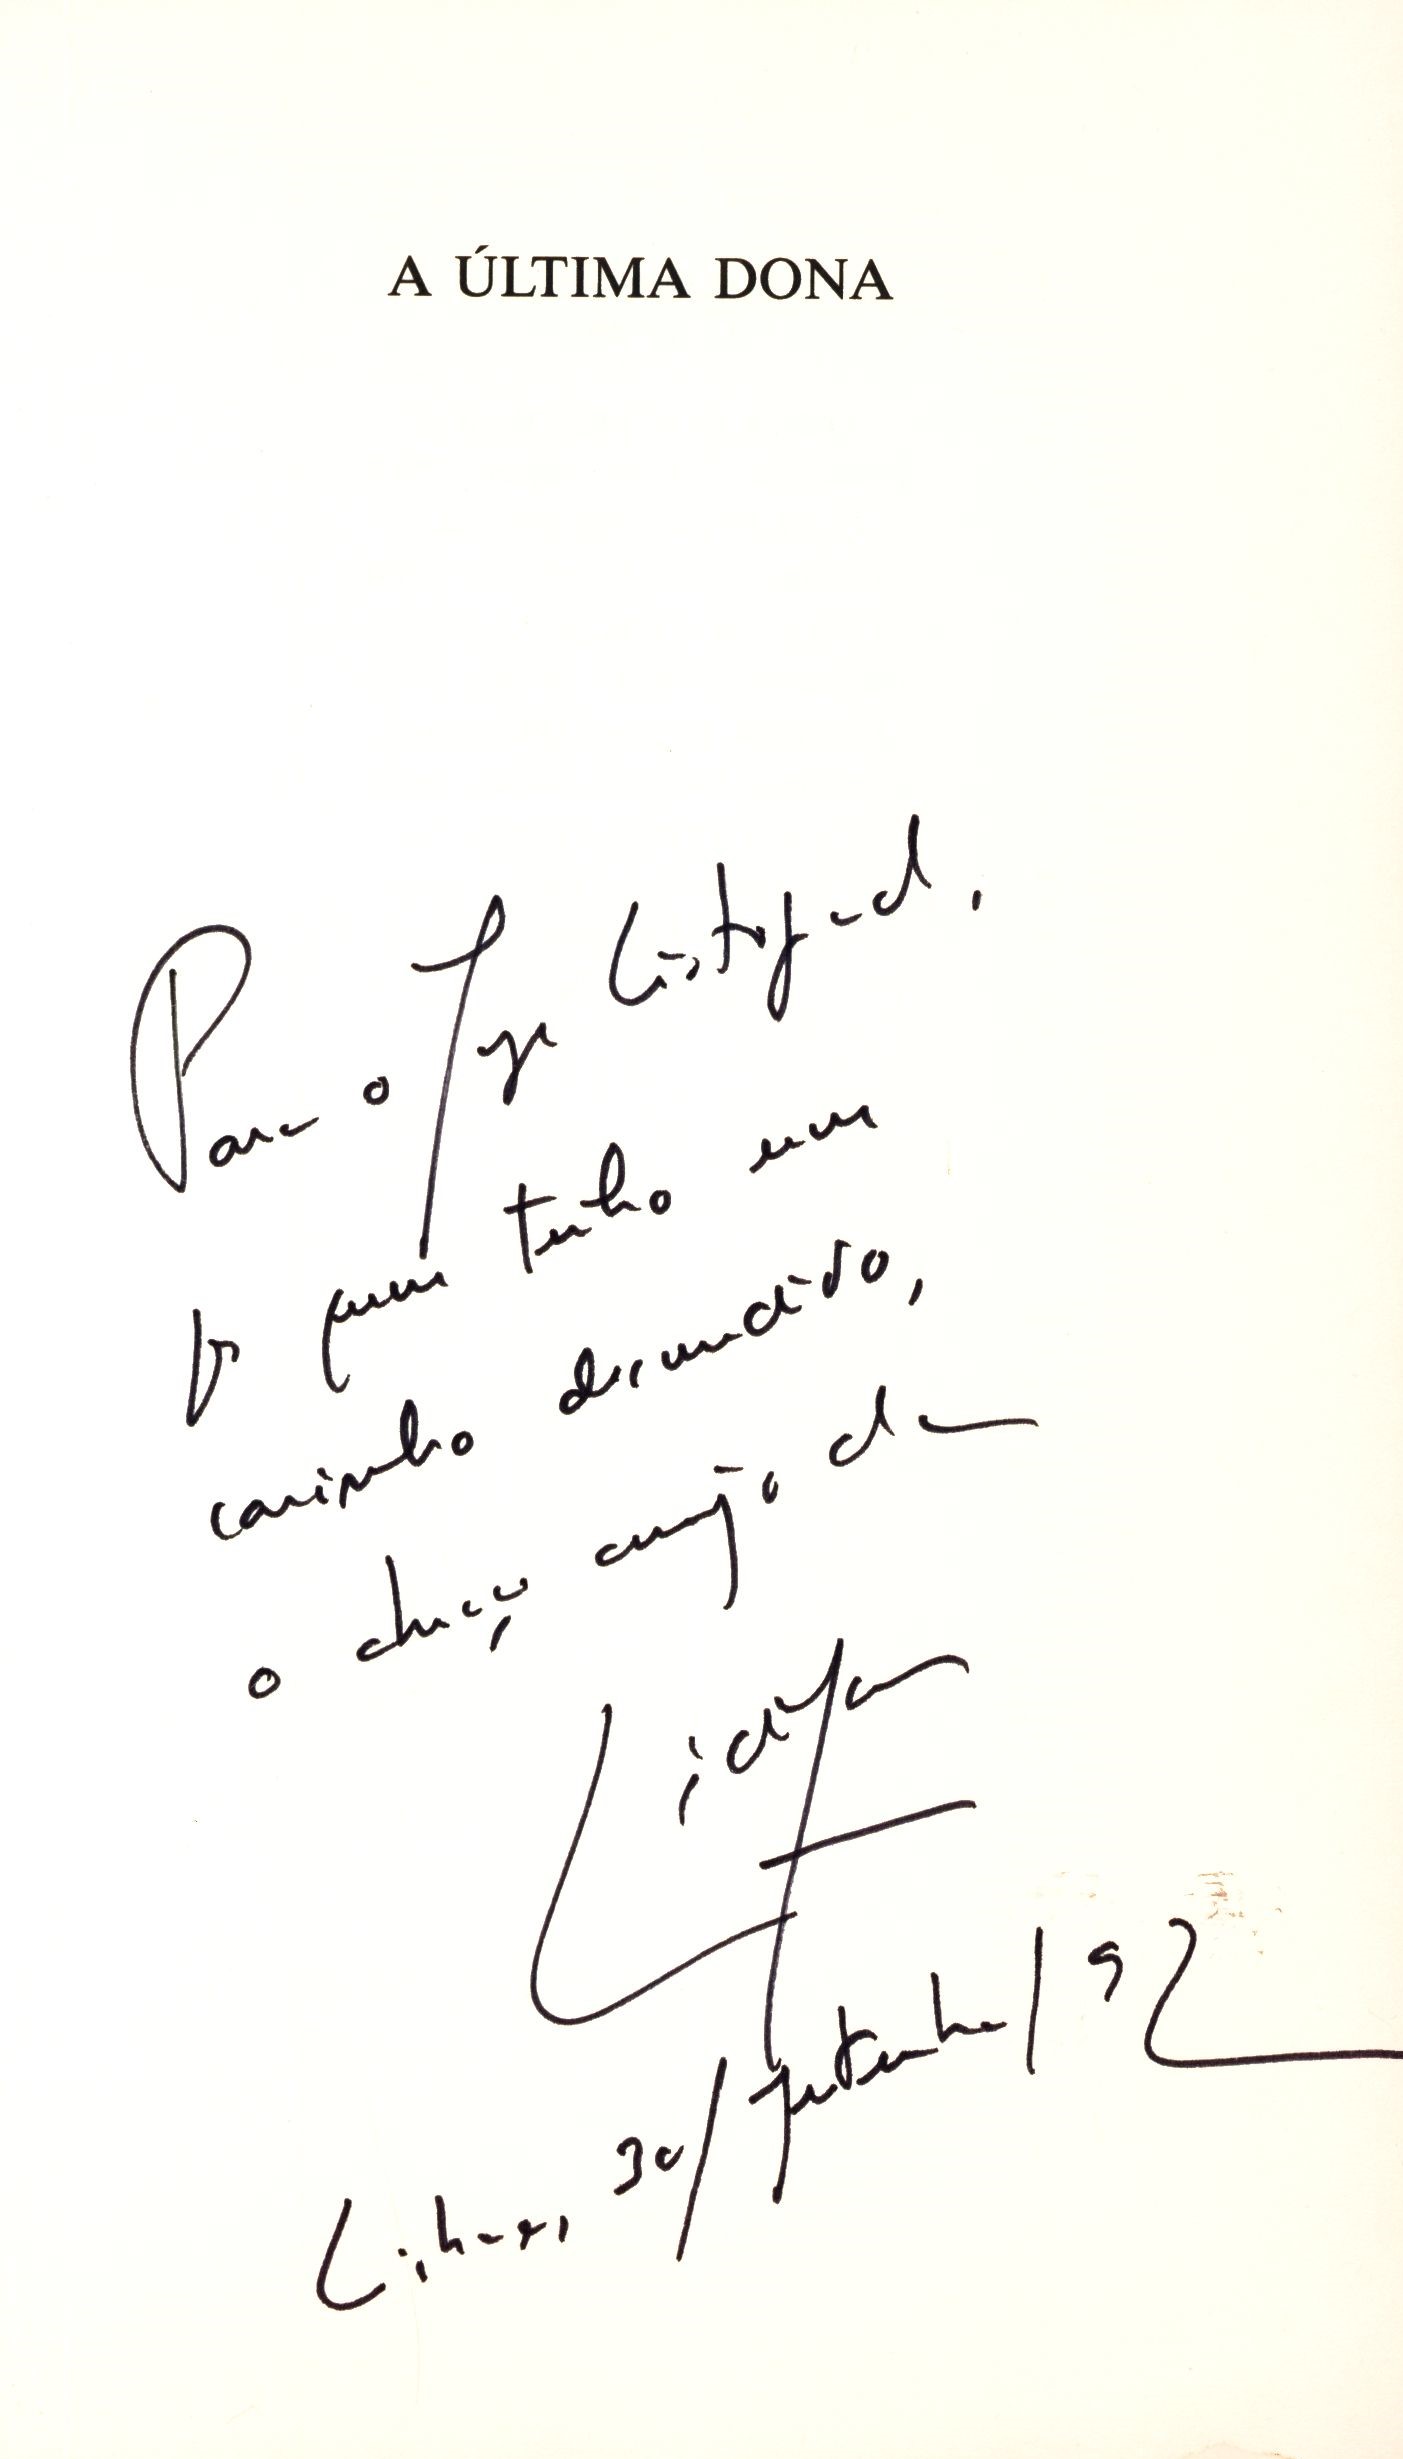 A ÚLTIMA DONA
Para o Jorge Listopad,
por quem tenho um
carinho desmedido,
o abraço amigo da
Lídia
30/setembro/92